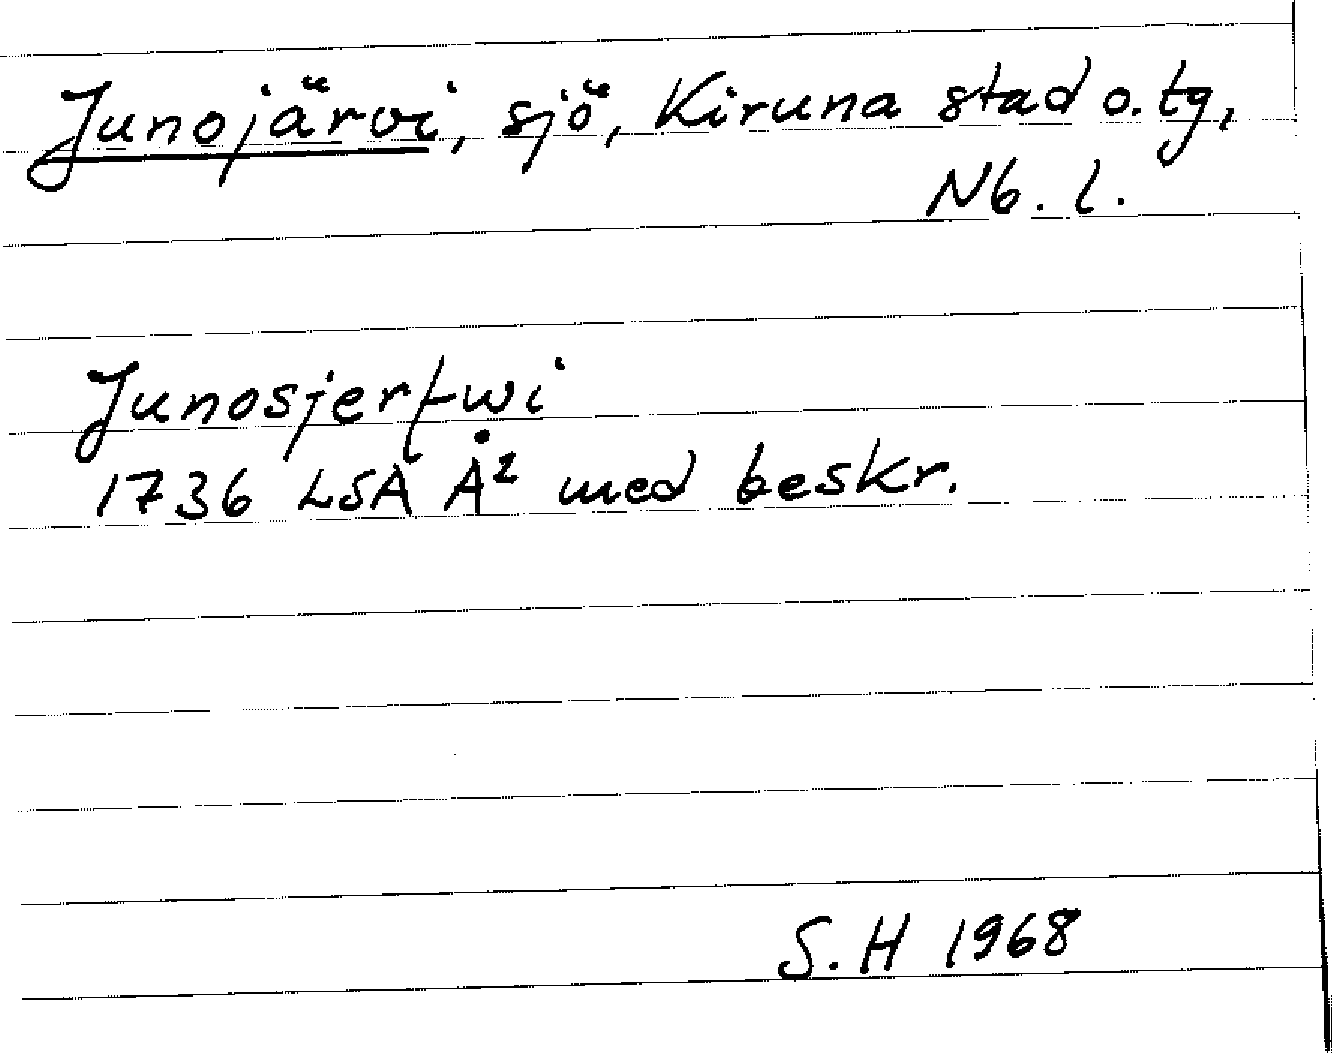 Junojärvi, sjö, Kiruna stad o. tg,
Nb. l.
Junosjerfwi
1736 LSA Å² med beskr.
S. H 1968